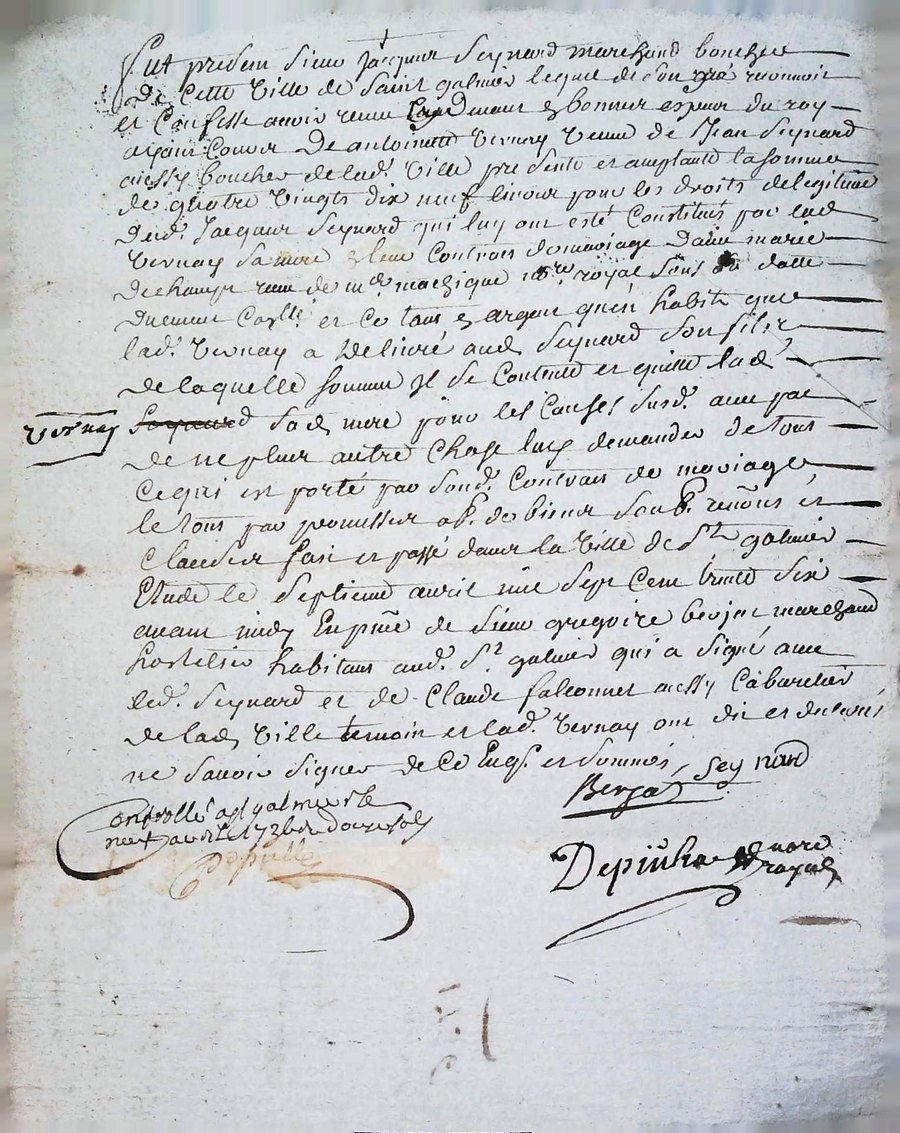 Fut present Sieur Jacques Seynard marchand boucher
De Cette Ville de Saint galmier lequel de Son gré reconnoit
et Confesse avoir receu en bonnes espesses du roy
ayant Couvr De antoinette Vernay Veuve de Jean Seynard
aussy boucher de lad. Ville presente et acceptante la somme
de quatre Vingts dix neuf livres pour les droits de legitime
Dud. Jacques Seynard qui luy ont esté Constitués par lad
Vernay Sa mere leur Contract de mariage Davec marie
Dechamps receu de me. nore. royal Sous Sa datte
et Ce tant argent qu'en habits que
lad. Vernay a Delivré aud Seynard Son filz
de laquelle Somme Il Se Contente et quitte lad
Vernay Sad mere pour les Causes Susd. avec pac
de ne plus autre Chose luy demander de tout
Ce qui est porté par Sond. Contract de mariage
le tout par promesses ob. de biens Soub. renons. et
Clauses fait et passé dans la Ville de St galmier
Etude le Septieme avril mil Sept Cent trente Six
avant midy En pnce de Sieur gregoire marchand
hostelier habitant aud. St galmier qui a Signé avec
led. Seynard et de Claude falconnet aussy Cabaretier
de lad Ville temoin et lad. Vernay ont dit et declaré
ne Savoir Signer de Ce Enq. et Sommés, Seynard
Controllé a St galmier le
neuf avril 1736 douze sols
nore
royal